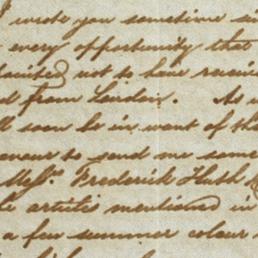 I wrote you sometime
every opportunity that
not to have
from London. As
soon be in want of
to send me some
Messrs. Frederick Huth
articles mentioned in
a few summer colour